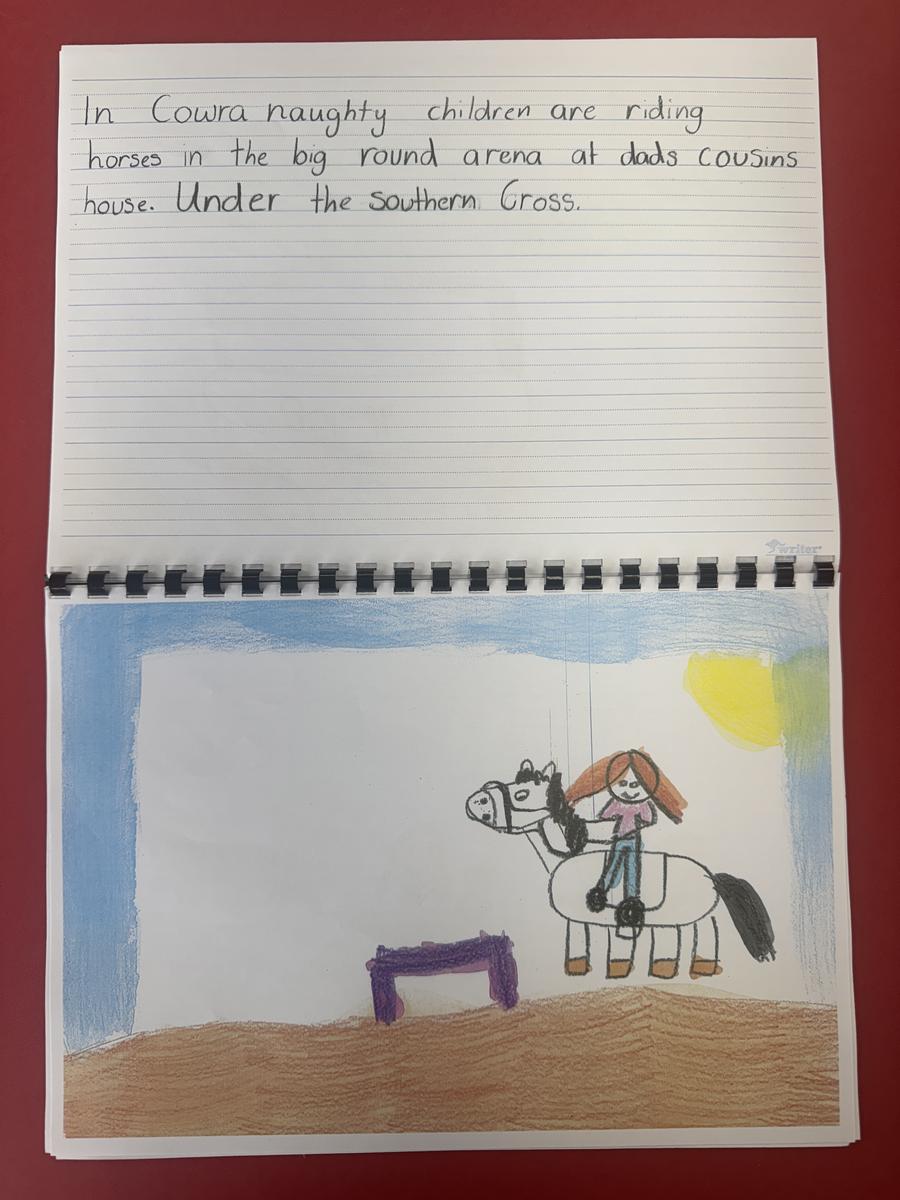 In Cowra naughty children are riding
horses in the big round arena at dads cousins
house. Under the southern Cross.
writer